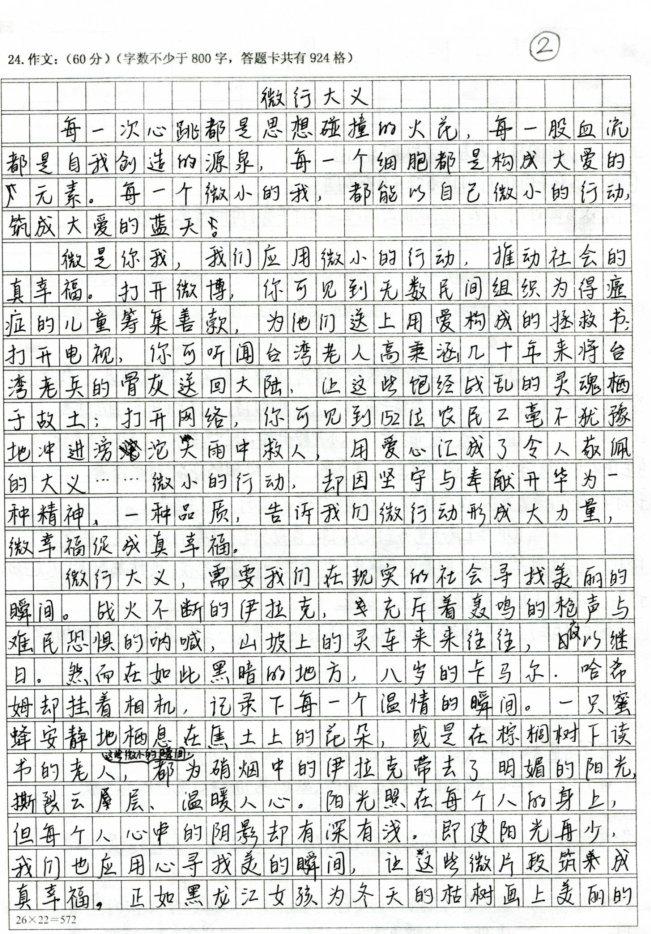 ②
24.作文：（60分）（字数不少于800字，答题卡共有924格）
微行大义
每一次心跳都是思想碰撞的火花，每一股血流
都是自我创造的源泉，每一个细胞都是构成大爱的
个元素。每一个微小的我，都能以自己微小的行动，
筑成大爱的蓝天。
微是你我，我们应用微小的行动，推动社会的
真幸福。打开微博，你可见到无数民间组织为得癌
症的儿童筹集善款，为他们送上用爱构成的拯救书；
打开电视，你可听闻台湾老人高秉涵几十年来将台
湾老兵的骨灰送回大陆，让这些饱经战乱的灵魂栖
于故土；打开网络，你可见到152位农民工毫不犹豫
地冲进滂沱大雨中救人，用爱心汇成了令人敬佩
的大义……微小的行动，却因坚守与奉献升华为一
种精神，一种品质，告诉我们微行动形成大力量，
微幸福促成真幸福。
微行大义，需要我们在现实的社会寻找美丽的
瞬间。战火不断的伊拉克，充斥着轰鸣的枪声与
难民恐惧的呐喊，山坡上的灵车来来往往，夜以继
日。然而在如此黑暗的地方，八岁的卡马尔·哈希
姆却挂着相机，记录下每一个温情的瞬间。一只蜜
蜂安静地栖息在焦土上的花朵，或是在棕榈树下读
书的老人，这些微小的瞬间，都为硝烟中的伊拉克带去了明媚的阳光，
撕裂云层、温暖人心。阳光照在每个人的身上，
但每个人心中的阴影却有深有浅。即使阳光再少，
我们也应用心寻找美的瞬间，让这些微片段筑成
真幸福。正如黑龙江女孩为冬天的枯树画上美丽的
26×22=572